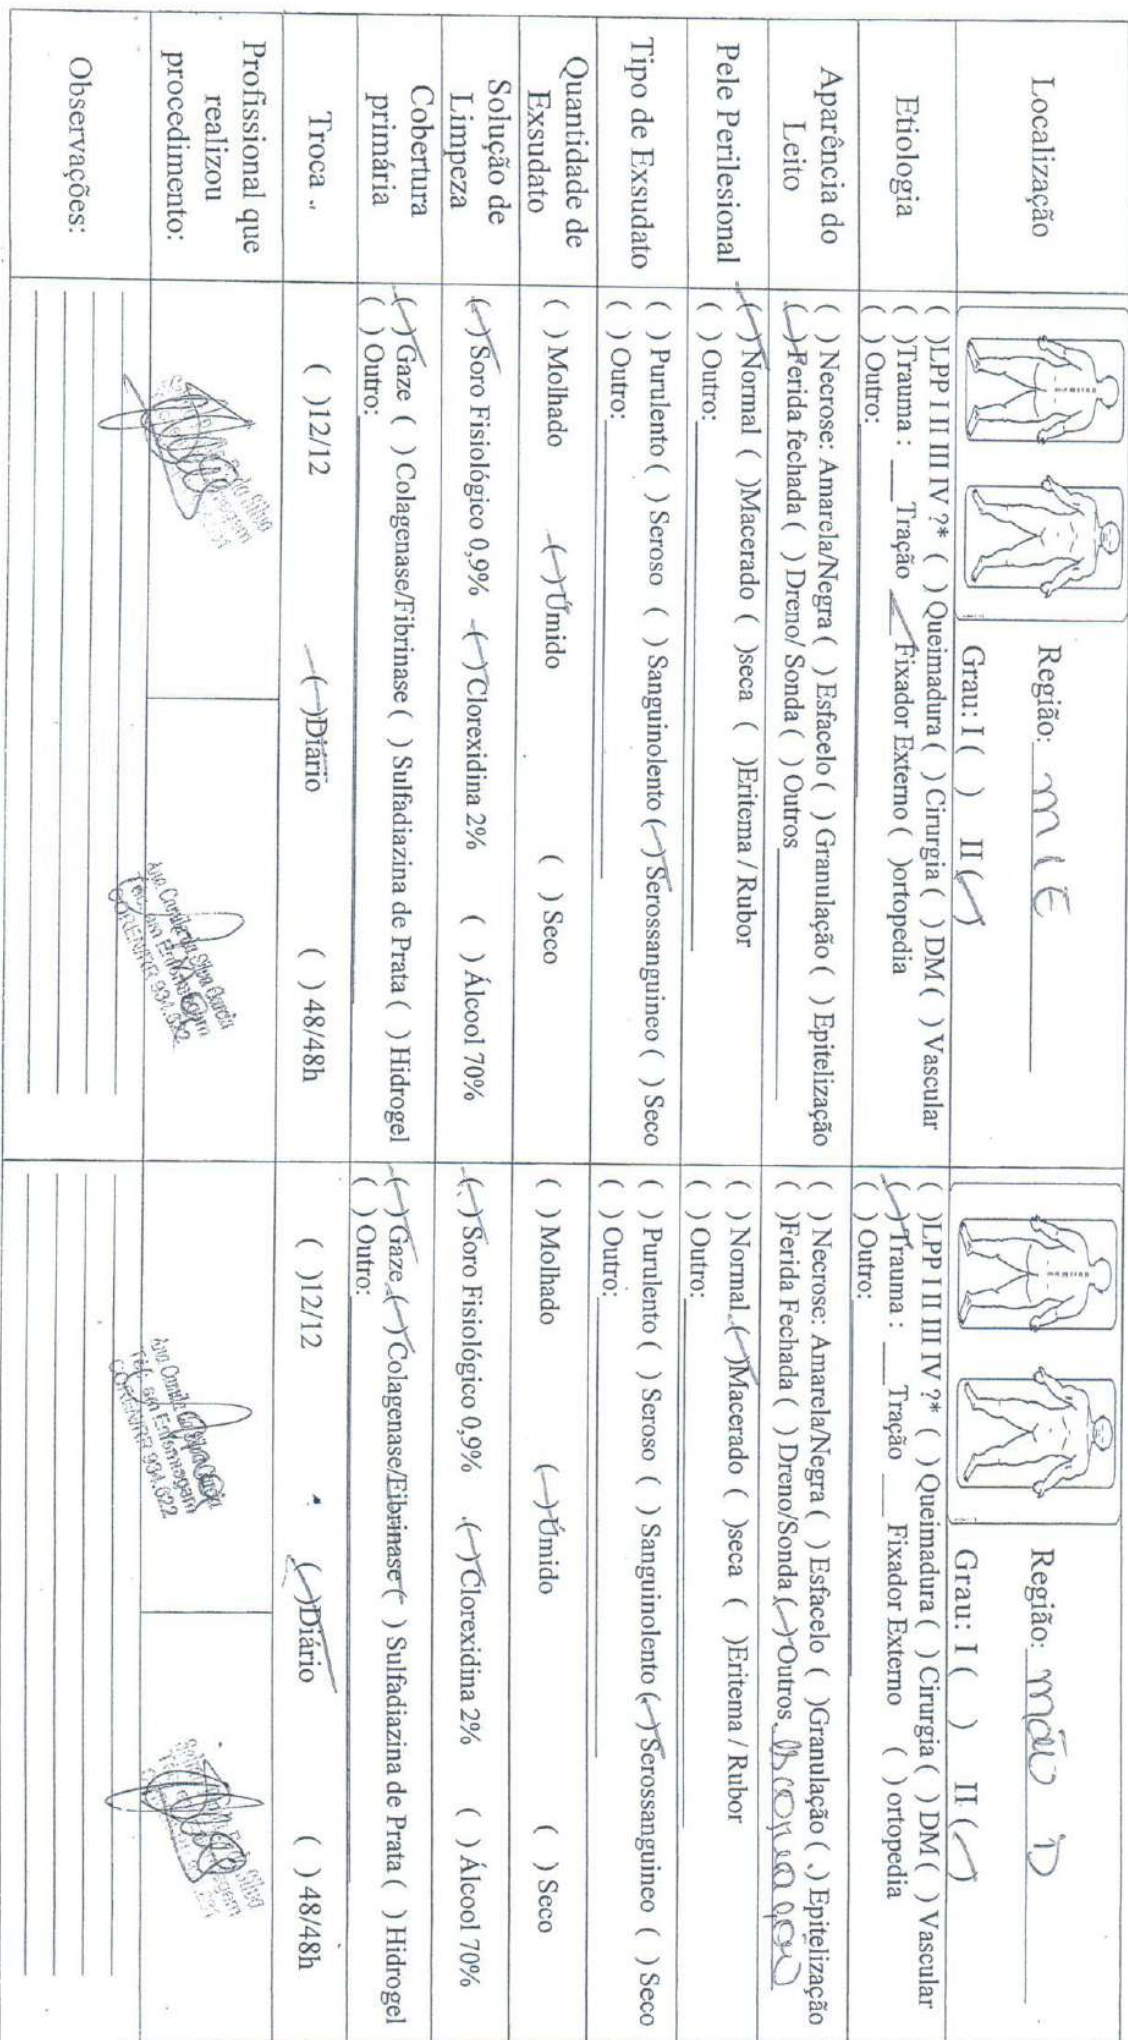 Localização
Região: MIE
Grau: I ( ) II (✓)
Região: mão D
Grau: I ( ) II (✓)
Etiologia
( )LPP I II III IV ?* ( ) Queimadura ( ) Cirurgia ( ) DM ( ) Vascular
( )Trauma : ___ Tração ✓ Fixador Externo ( )ortopedia
( ) Outro:
( )LPP I II III IV ?* ( ) Queimadura ( ) Cirurgia ( ) DM ( ) Vascular
(✓)Trauma : ___ Tração __ Fixador Externo ( ) ortopedia
( ) Outro:
Aparência do
Leito
( ) Necrose: Amarela/Negra ( ) Esfacelo ( ) Granulação ( ) Epitelização
(✓)Ferida fechada ( ) Dreno/ Sonda ( ) Outros
( ) Necrose: Amarela/Negra ( ) Esfacelo ( )Granulação ( ) Epitelização
( )Ferida Fechada ( ) Dreno/Sonda (✓)Outros
Pele Perilesional
(✓)Normal ( )Macerado ( )seca ( )Eritema / Rubor
( ) Outro:
( ) Normal (✓)Macerado ( )seca ( )Eritema / Rubor
( ) Outro:
Tipo de Exsudato
( ) Purulento ( ) Seroso ( ) Sanguinolento (✓) Serossanguineo ( ) Seco
( ) Outro:
( ) Purulento ( ) Seroso ( ) Sanguinolento (✓)Serossanguineo ( ) Seco
( ) Outro:
Quantidade de
Exsudato
( ) Molhado (✓)Úmido ( ) Seco
( ) Molhado (✓)Úmido ( ) Seco
Solução de
Limpeza
(✓)Soro Fisiológico 0,9% (✓)Clorexidina 2% ( ) Álcool 70%
(✓)Soro Fisiológico 0,9% (✓)Clorexidina 2% ( ) Álcool 70%
Cobertura
primária
(✓)Gaze ( ) Colagenase/Fibrinase ( ) Sulfadiazina de Prata ( ) Hidrogel
( ) Outro:
(✓)Gaze (✓)Colagenase/Fibrinase ( ) Sulfadiazina de Prata ( ) Hidrogel
( ) Outro:
Troca
( )12/12 (✓)Diário ( ) 48/48h
( )12/12 (✓)Diário ( ) 48/48h
Profissional que
realizou
procedimento:
da Silva
Ana Camila da Silva Garcia
Téc. em Enfermagem
COREN/RR 934.022
Ana Camila
Téc. em Enfermagem
COREN/RR 934.022
Silva
Observações: